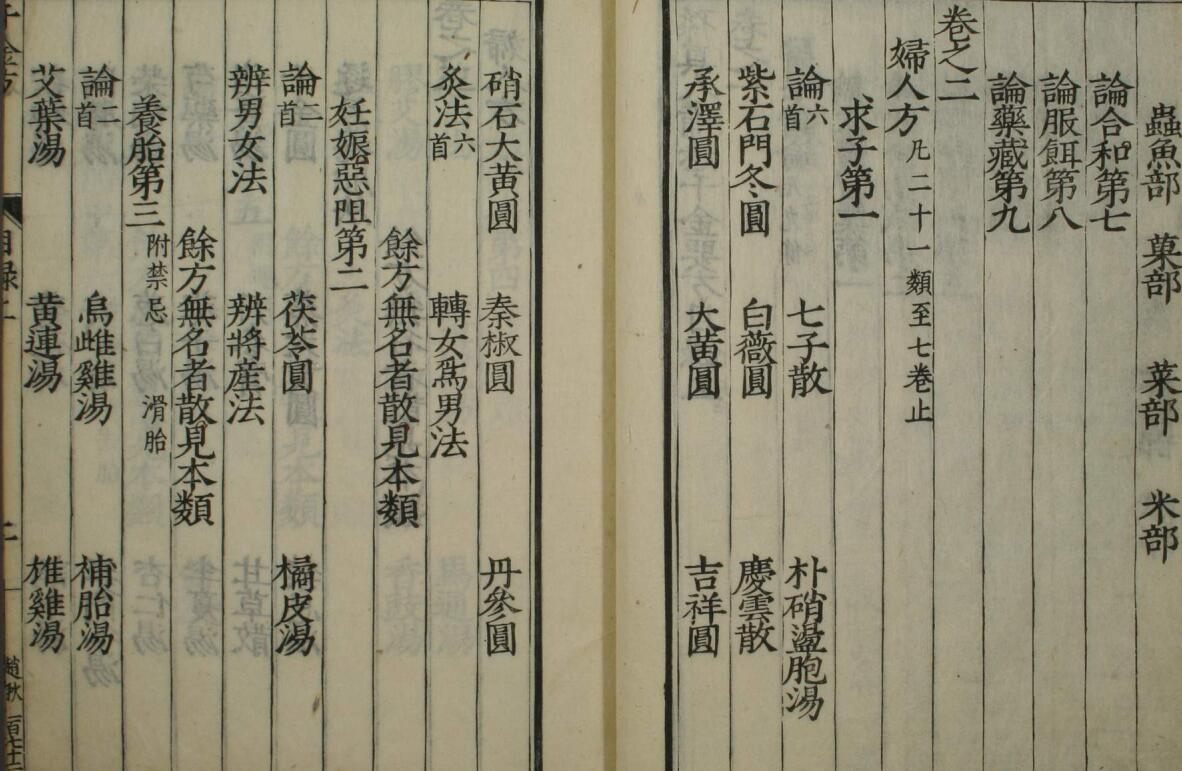 蟲魚部 菓部 菜部 米部
論合和第七
論服餌第八
論藥藏第九
卷之二
婦人方 凡二十一類至七卷止
求子第一
論六首 七子散 朴硝盪胞湯
紫石門冬圓 白薇圓 慶雲散
承澤圓 大黃圓 吉祥圓
硝石大黃圓 秦椒圓 丹參圓
灸法六首 轉女爲男法
餘方無名者散見本類
妊娠惡阻第二
論二首 茯苓圓 橘皮湯
辨男女法 辨將産法
餘方無名者散見本類
養胎第三 附禁忌 滑胎
論二首 烏雌雞湯 補胎湯
艾葉湯 黃連湯 雄雞湯
千金方 目録